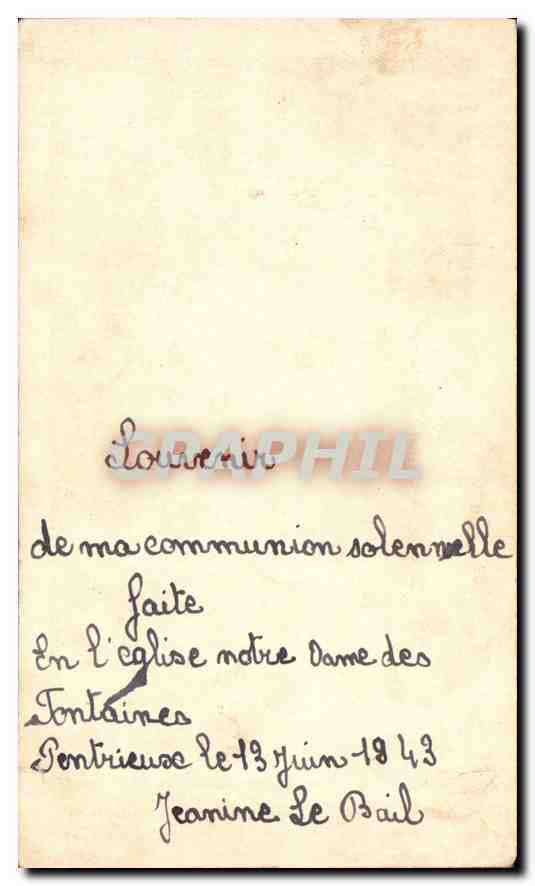 Souvenir
CPAPHIL
de ma communion solennelle
faite
En l'église notre Dame des
Fontaines
Pontrieuxe le 13 Juin 1943
Jeanine Le Bail